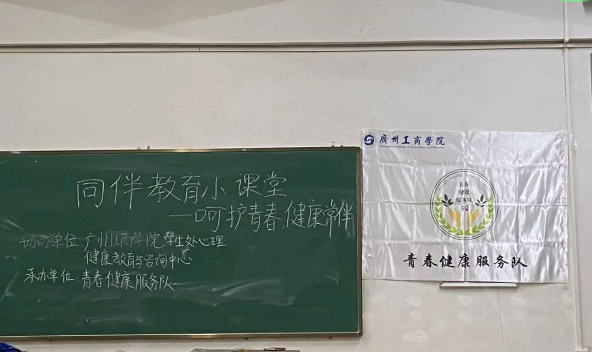 同伴教育小课堂
—呵护青春,健康常伴
协办单位:广州工商学院学生处心理
健康教育与咨询中心
承办单位:青春健康服务队
廣州工商學院
青春
健康
服务队
青春健康服务队